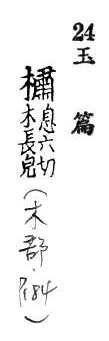 24 玉篇
橚息六切木長皃(木部·P184)